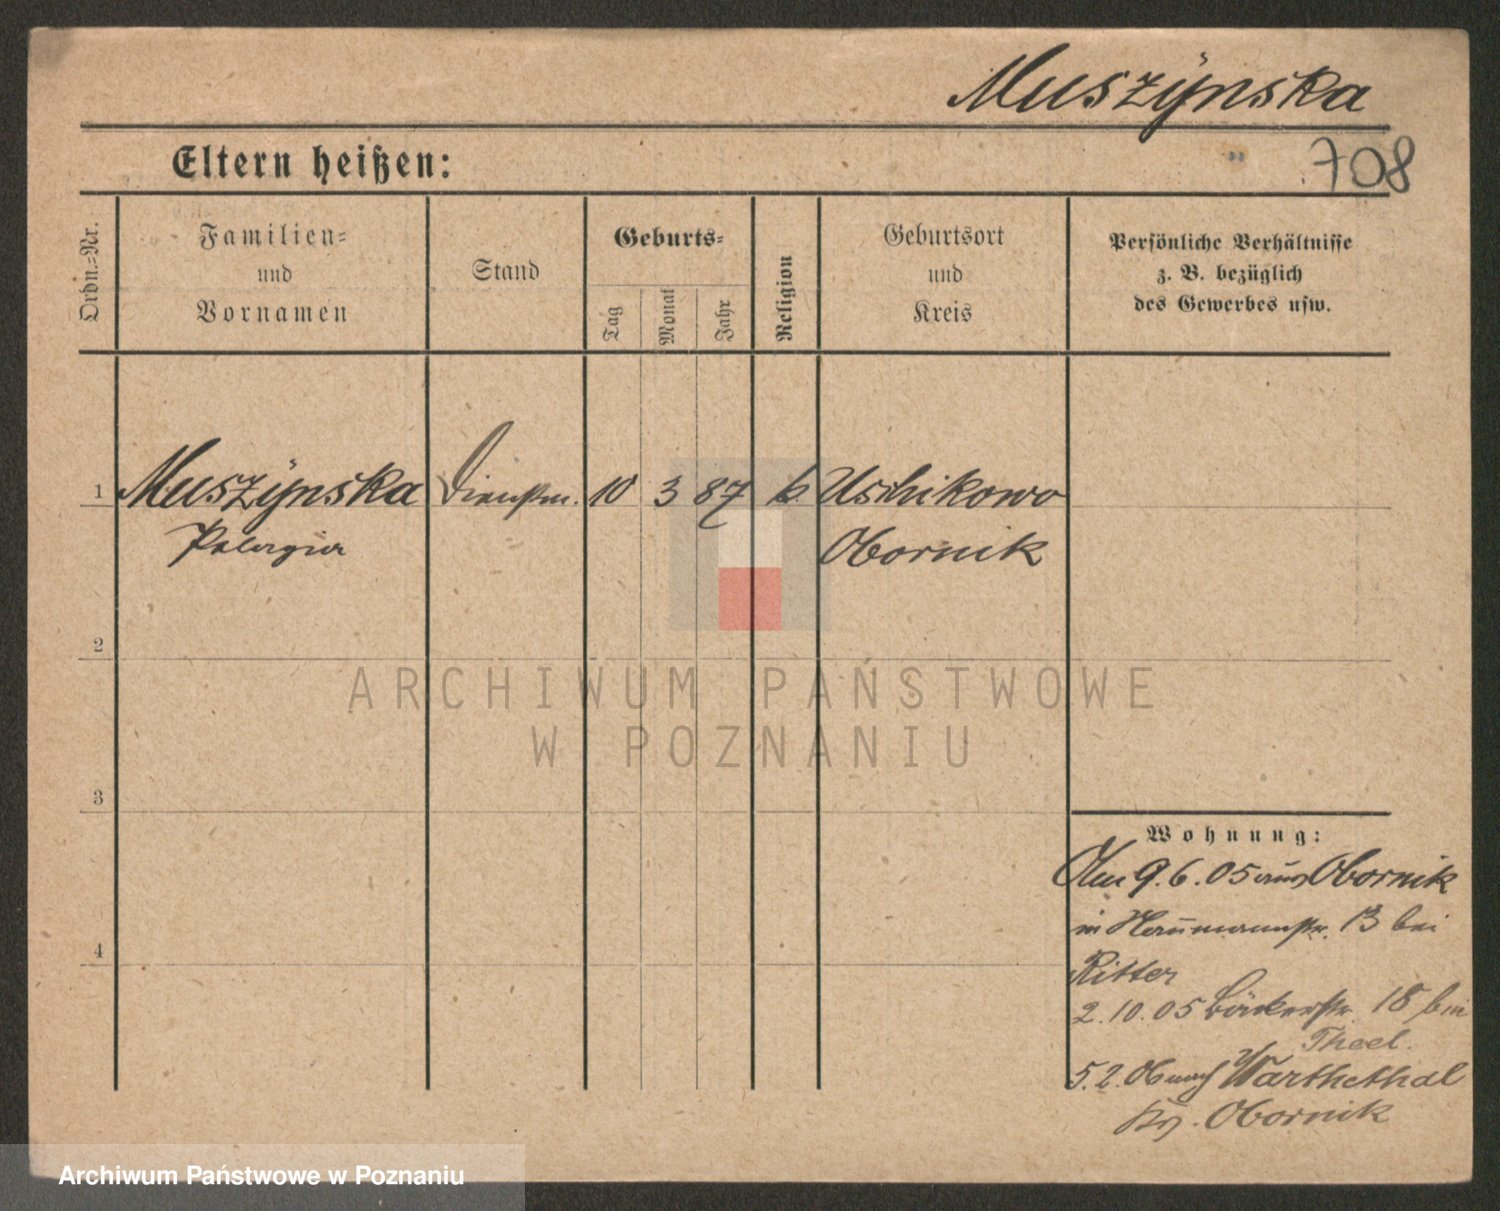 Muszÿnska
Eltern heißen:
708
Ordn.=Nr.
Familien=
und
Vornamen
Stand
Geburts=
Tag
Monat
Jahr
Religion
Geburtsort
und
Kreis
Persönliche Verhältnisse
z. B. bezüglich
des Gewerbes usw.
1 Muszÿnska Dienstm. 10 3 87 k Uschikowo
Pelagia Obornik
2
3
4
ARCHIWUM PAŃSTWOWE
W POZNANIU
Wohnung:
Am 9.6.05 aus Obornik
in Naumannstr. 13 bei
Ritter
2.10.05 Bäckerstr. 18 bei
Theel.
5.2.06 nach Warthethal
Kr. Obornik
Archiwum Państwowe w Poznaniu